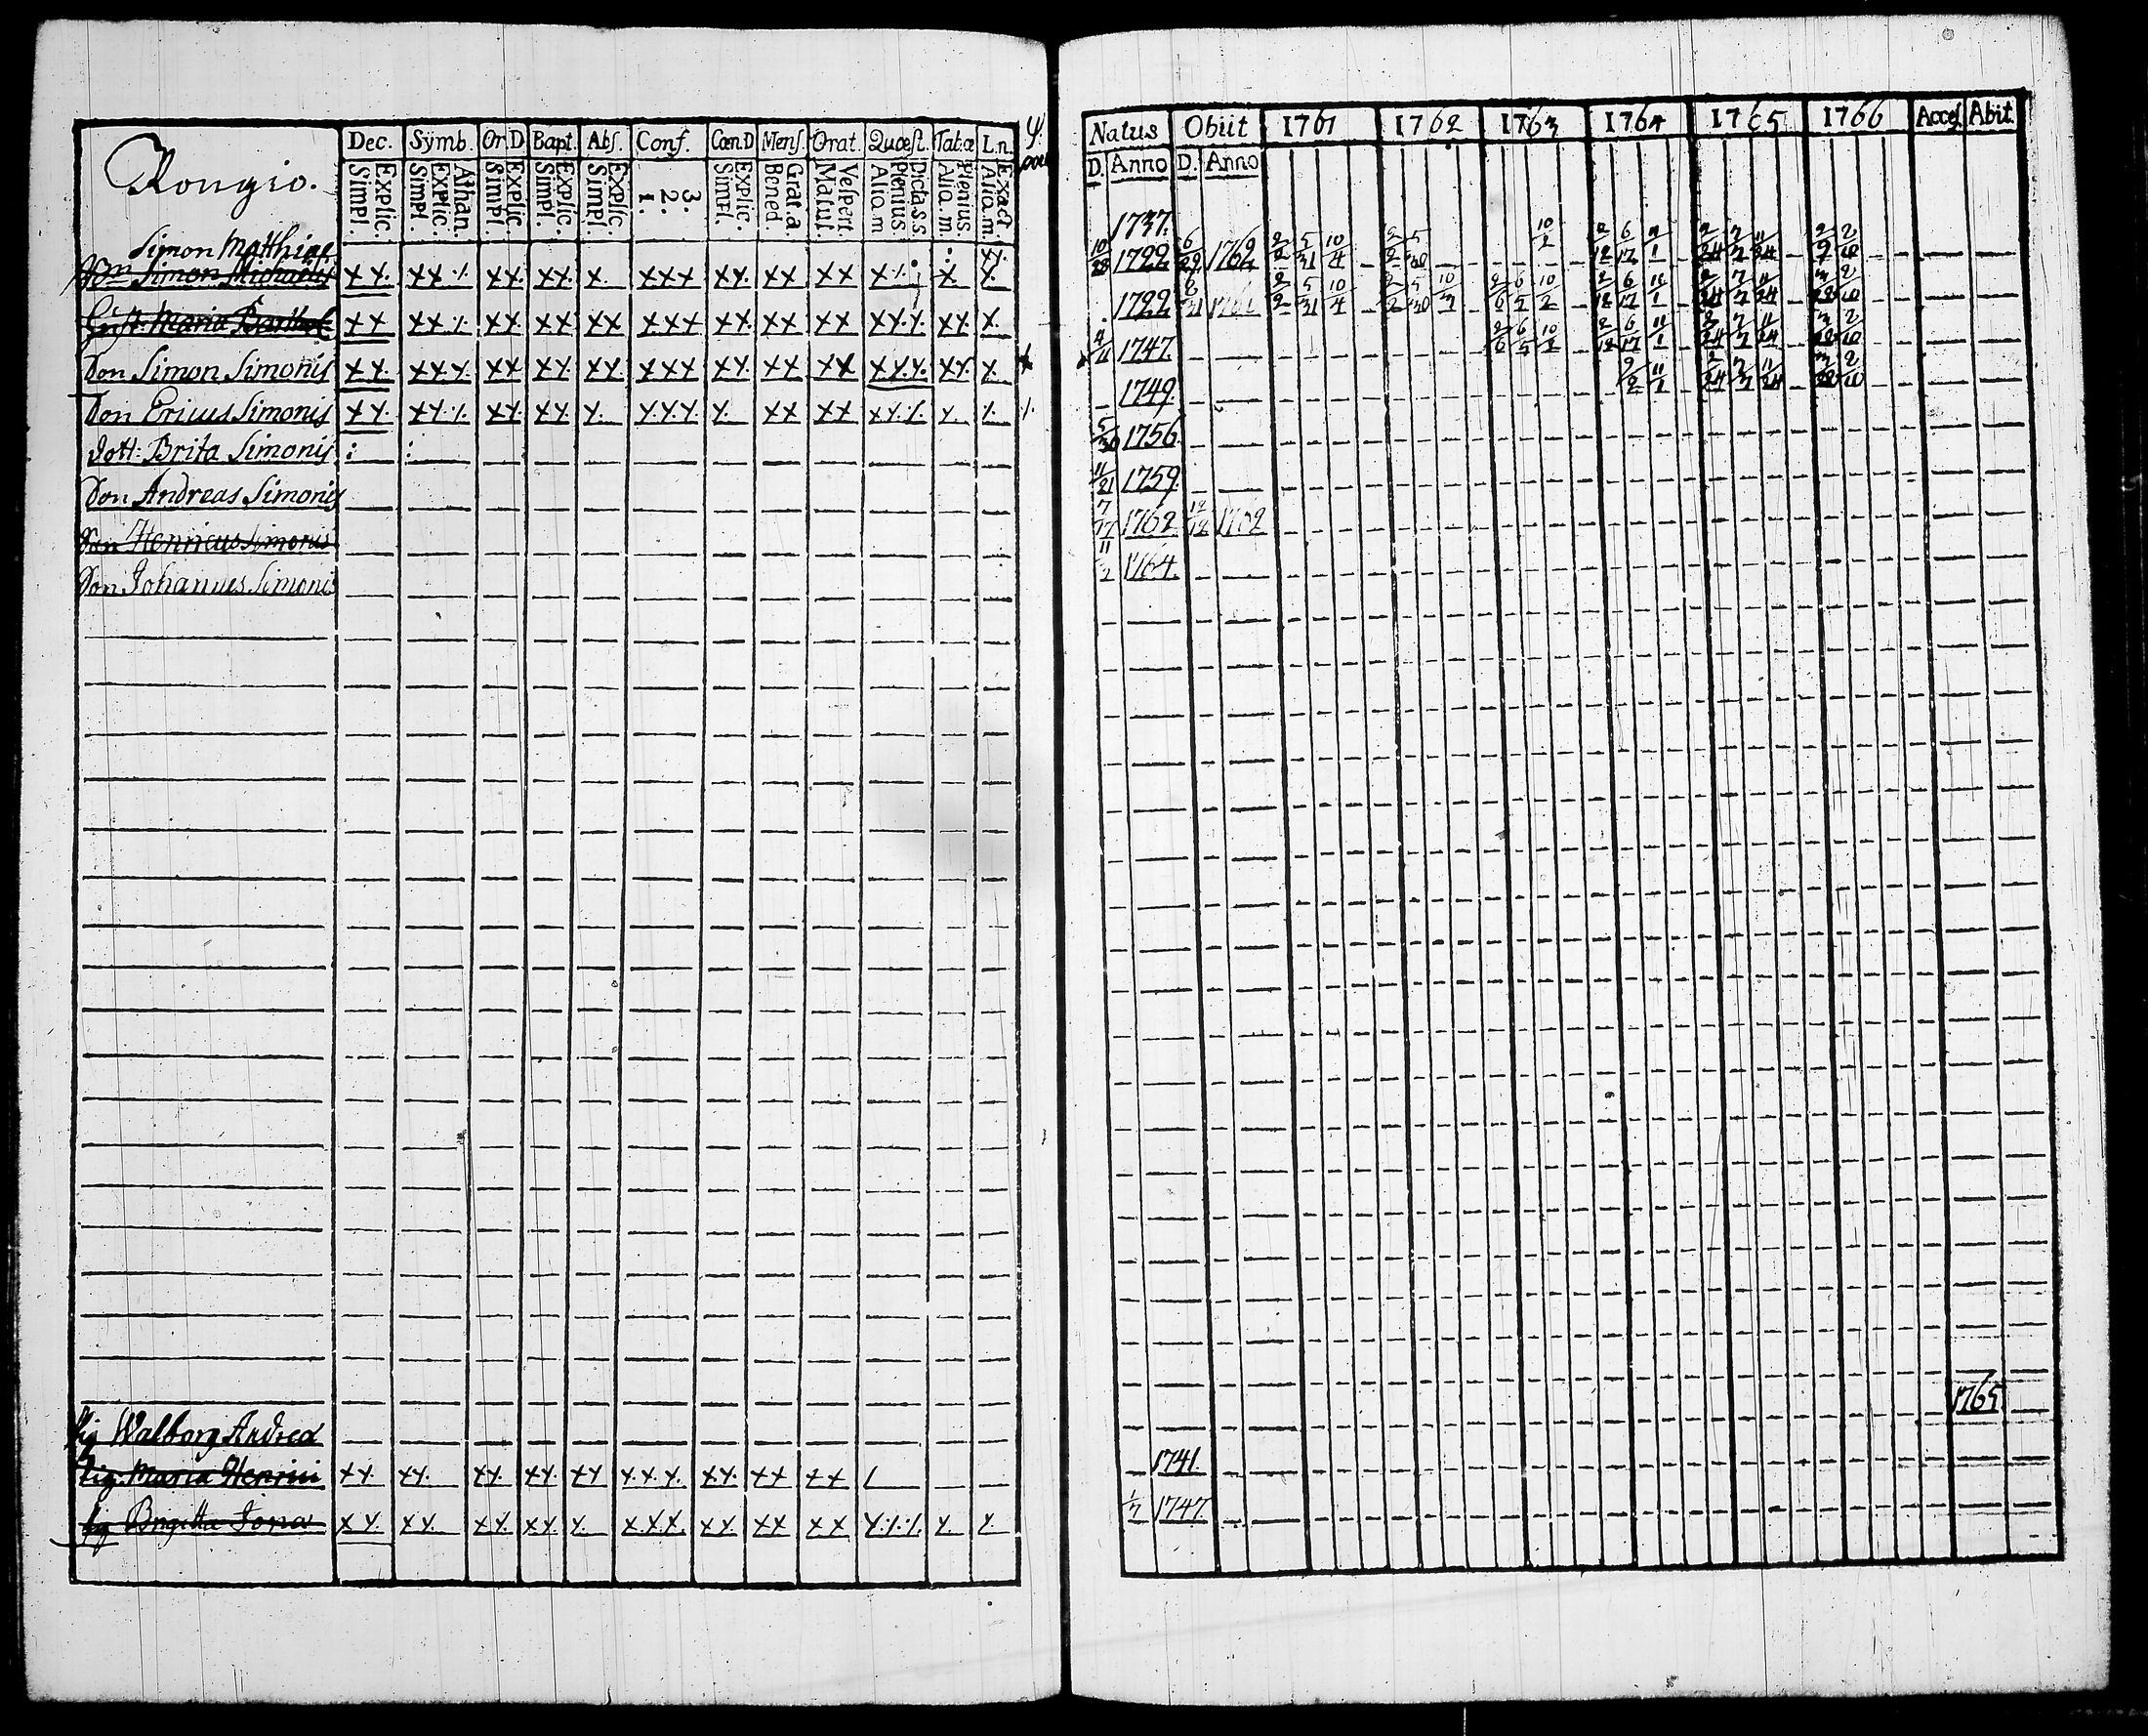 Rongio.
Dec. Symb. Or.D Bapt. Abs. Conf. Cœn.D Mens Orat. Quœst. Tab:œ L.n.
Explic. Simpl. Athan. Explic. Simpl. Explic. Simpl. Explic. Simpl. Explic. Simpl. 3. 2. 1. Explic. Simpl. Grat.a. Bened. Vespert. Matut. Dicta s.s Plenius Aliq.m Plenius. Aliq.m. Exact. Aliq.m.
Simon Matthiae
Simon Michaelis x x. x x ./. x x x x. x. x x x x x. x x x x x ./. x. x.
Maria Barthol x x x x ./. x x x x x x x x x x x. x x x x x x. x. x x. x.
Son Simon Simonis x x. x x x. x x x x. x x. x x x x x. x x x x x x. x. x x. x.
Son Ericus Simonis x x. x x. ./. x x. x x. x. x. x. x x. x x x x x x. ./. x. ./. ./.
Dott: Brita Simonis : :
Son Andreas Simonis
Son Henricus Simonis
Son Johannes Simonis
Pig Walborg Andreæ
Pig: Maria Henrici x x. x x. x x. x x. x x x. x. x. x x. x x x x /
Pig Brigitta Jonæ x x. x x. x x. x x. x. x. x. x. x x x x x x x ./. ./. x. x.
Natus Obiit 1761 1762 1763 1764 1765 1766 Acces Abiit
D. Anno D. Anno
1737. 10/2 2/12 6/17 11/1 2/24 7/7 11/24 2/9 2/10
10/28 1722 6/29 1762 2/2 5/31 10/4 2/2 5/30
1722 2/2 5/31 10/4 2/2 5/30 10/3 2/6 6/2 10/2 2/12 6/17 11/1 2/24 7/7 11/24
4/11 1747. 2/6 6/5 10/2 2/12 6/17 11/1 2/24 7/7 11/24
1749. 9/2 11/1 2/24 7/7 11/24
5/30 1756.
11/21 1759.
7/17 1762 12/12 1762
11/2 1764.
1765
1741.
1/7 1747.